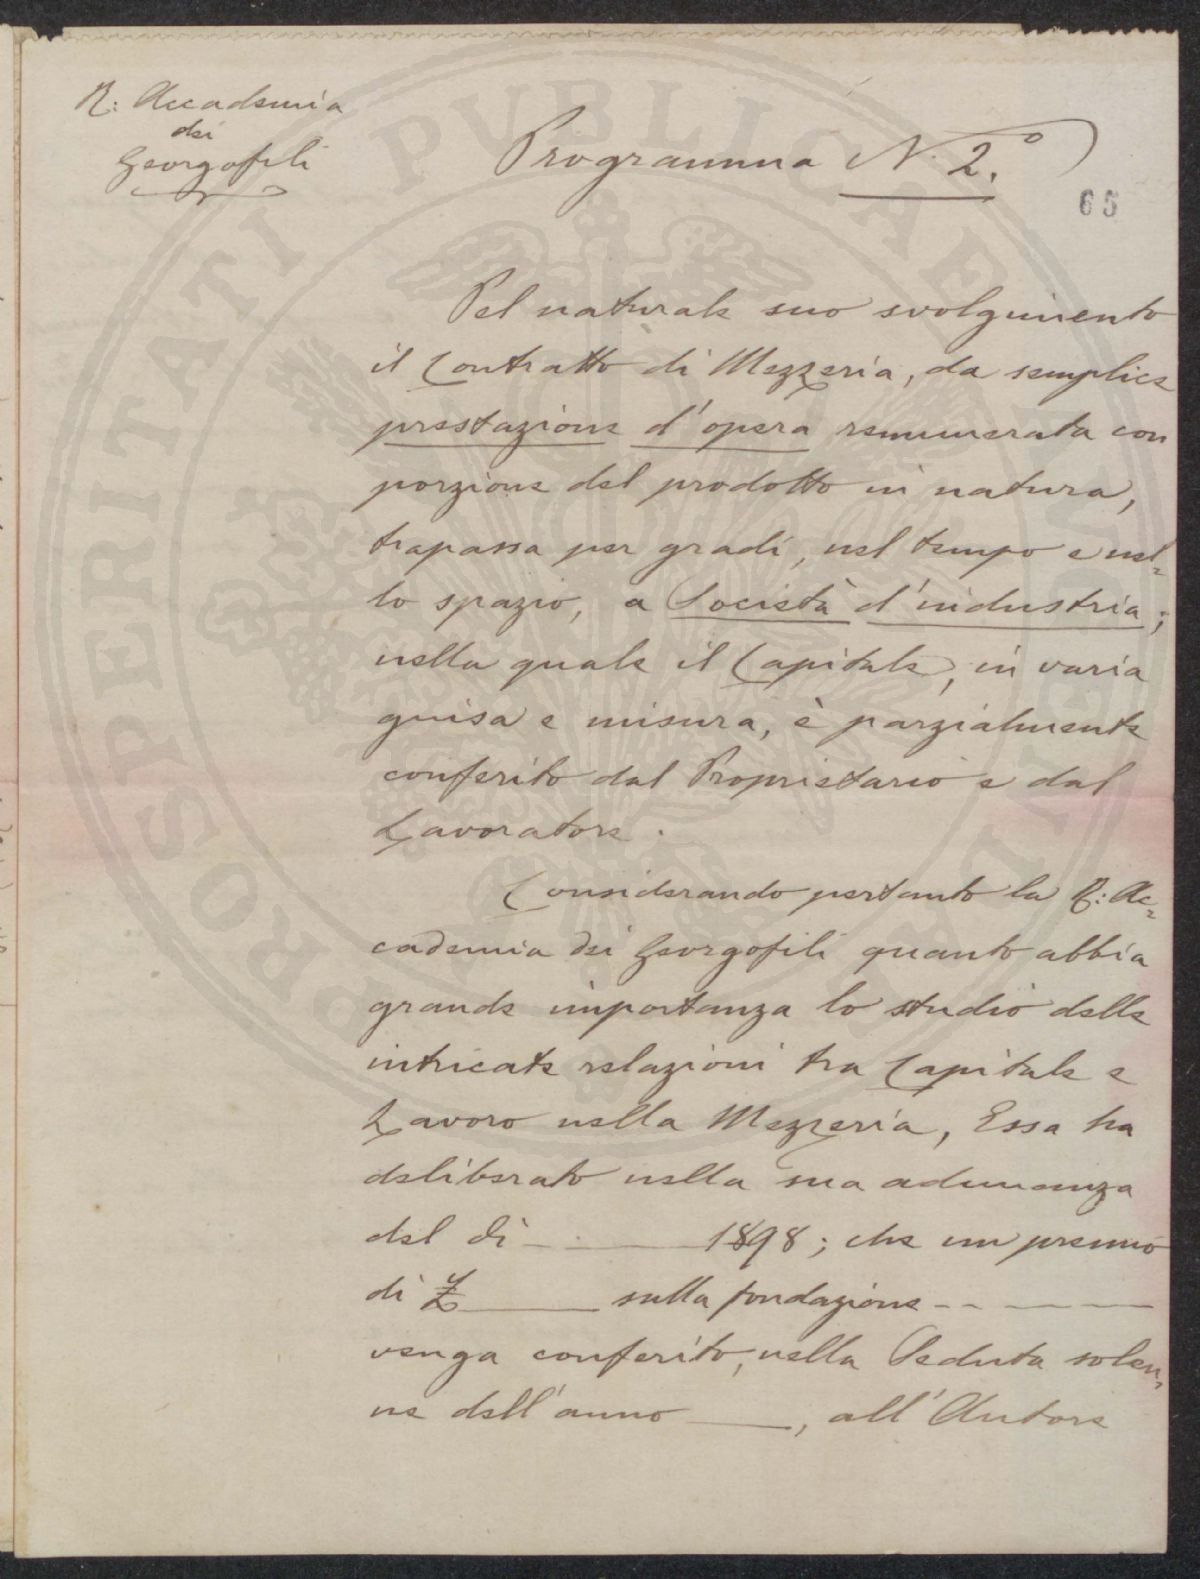 R: Accademia
dei
Georgofili
Programma N. 2.°
65
Pel naturale suo svolgimento
il Contratto di Mezzeria, da semplice
prestazione d'opera remunerata con
porzione del prodotto in natura,
trapassa per gradi, nel tempo e nel=
lo spazio, a Società d'industria;
nella quale il Capitale, in varia
guisa e misura, è parzialmente
conferito dal Proprietario e dal
Lavoratore.
Considerando pertanto la R: Ac=
cademia dei Georgofili quanto abbia
grande importanza lo studio delle
intricate relazioni tra Capitale e
Lavoro nella Mezzeria, Essa ha
deliberato nella sua adunanza
del dì ———— 1898; che un premio
di £ ———— sulla fondazione – – — — —
venga conferito, nella Seduta solen=
ne dell'anno ———, all'Autore
PROSPERITATI PVBLICAE